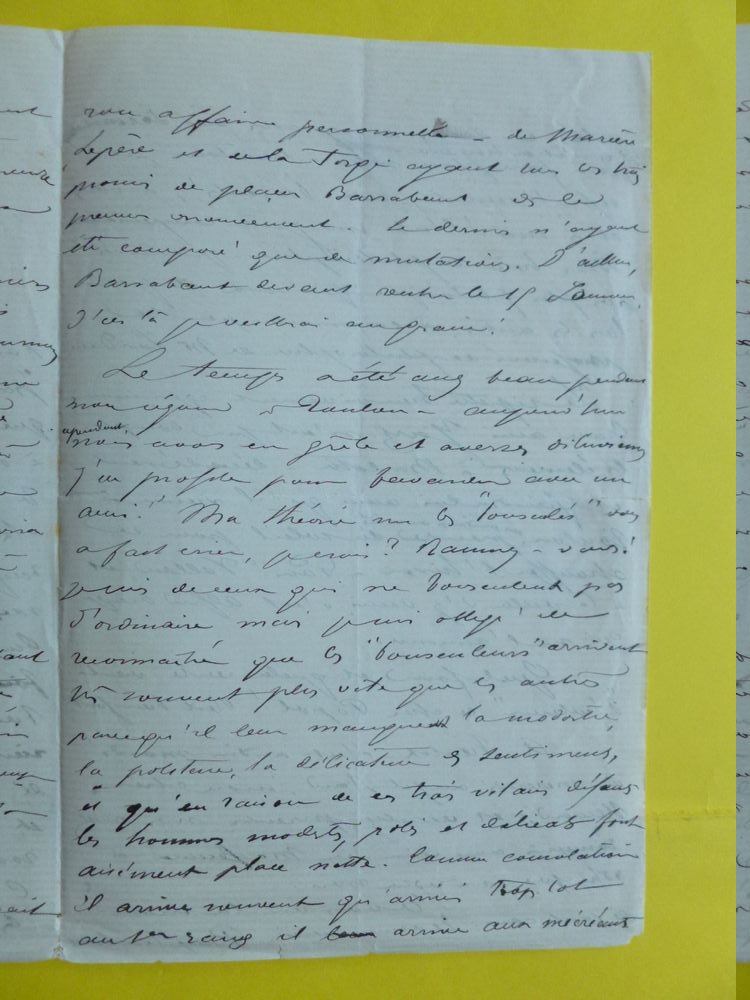 son affaire personnelle - de Marcère
Lepère et de la Forge ayant tous les trois
promis de placer Barrabant ds le
premier mouvement. Le dernier n'ayant
été composé que de mutations. D'ailleurs,
Barrabant devant rentrer le 15 Janvier.
d'ici là je veillerai au grain!
Le temps a été assez beau pendant
mon séjour à Toulon - aujourd'hui
cependant,
nous avons eu grêle et averses diluviennes
J'en profite pour bavarder avec un
ami! Ma théorie sur les "bousculés" vous
a fait crier, je crois? Rassurez-vous!
je suis de ceux qui ne bousculent pas
d'ordinaire mais je suis obligé de
reconnaître que les "bousculeurs" arrivent
très souvent plus vite que les autres
parcequ'il leur manque la modestie,
la politesse, la délicatesse des sentiments,
et qu'en raison de ces très vilains défauts
les hommes modestes, polis et délicats font
aisément place nette. Comme consolation
il arrive souvent qu'arrivés trop tôt
au 1er rang il arrive aux mécréants